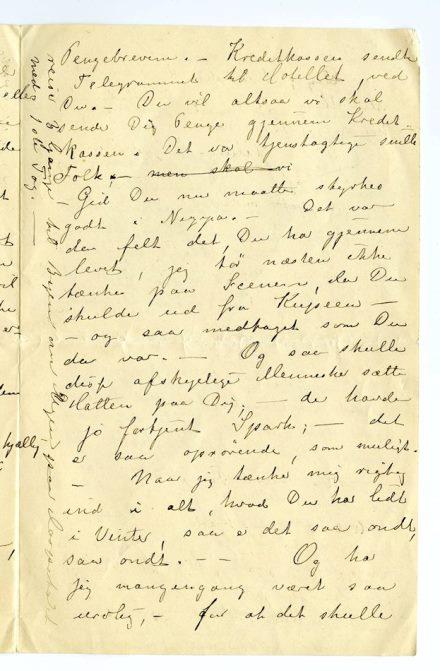 Pengebrevene. – Kreditkassen sendte
Telegrammet til Hotellet, ved
Du. – Du vil altsaa vi skal
sende Dig Penge gjennem Kredit-
kassen. Det var tjenstagtige snille
Folk, – men skal vi
Gid Du nu maatte styrkes
godt i Nizza. – Det var
den felt det, Du har gjennem
levet, jeg tør næsten ikke
tænke paa Scenen, da Du
skulde ud fra Kupeen –
– og saa medtaget som Du
da var. – Og saa skulle
disse afskyelige Mennesker sætte
Hatten paa Dig; – de havde
jo fortjent Spark; – det
er saa oprørende, som muligt.
– Naar jeg tænker mig rigtig
ind i alt, hvad Du har lidt
i Vinter, saa er det saa ondt,
saa ondt. – – Og har
jeg mangengang været saa
urolig, – for at det skulle
reise 3 Gange til Byen om Ugen, paa
med 1 ste Tog. –